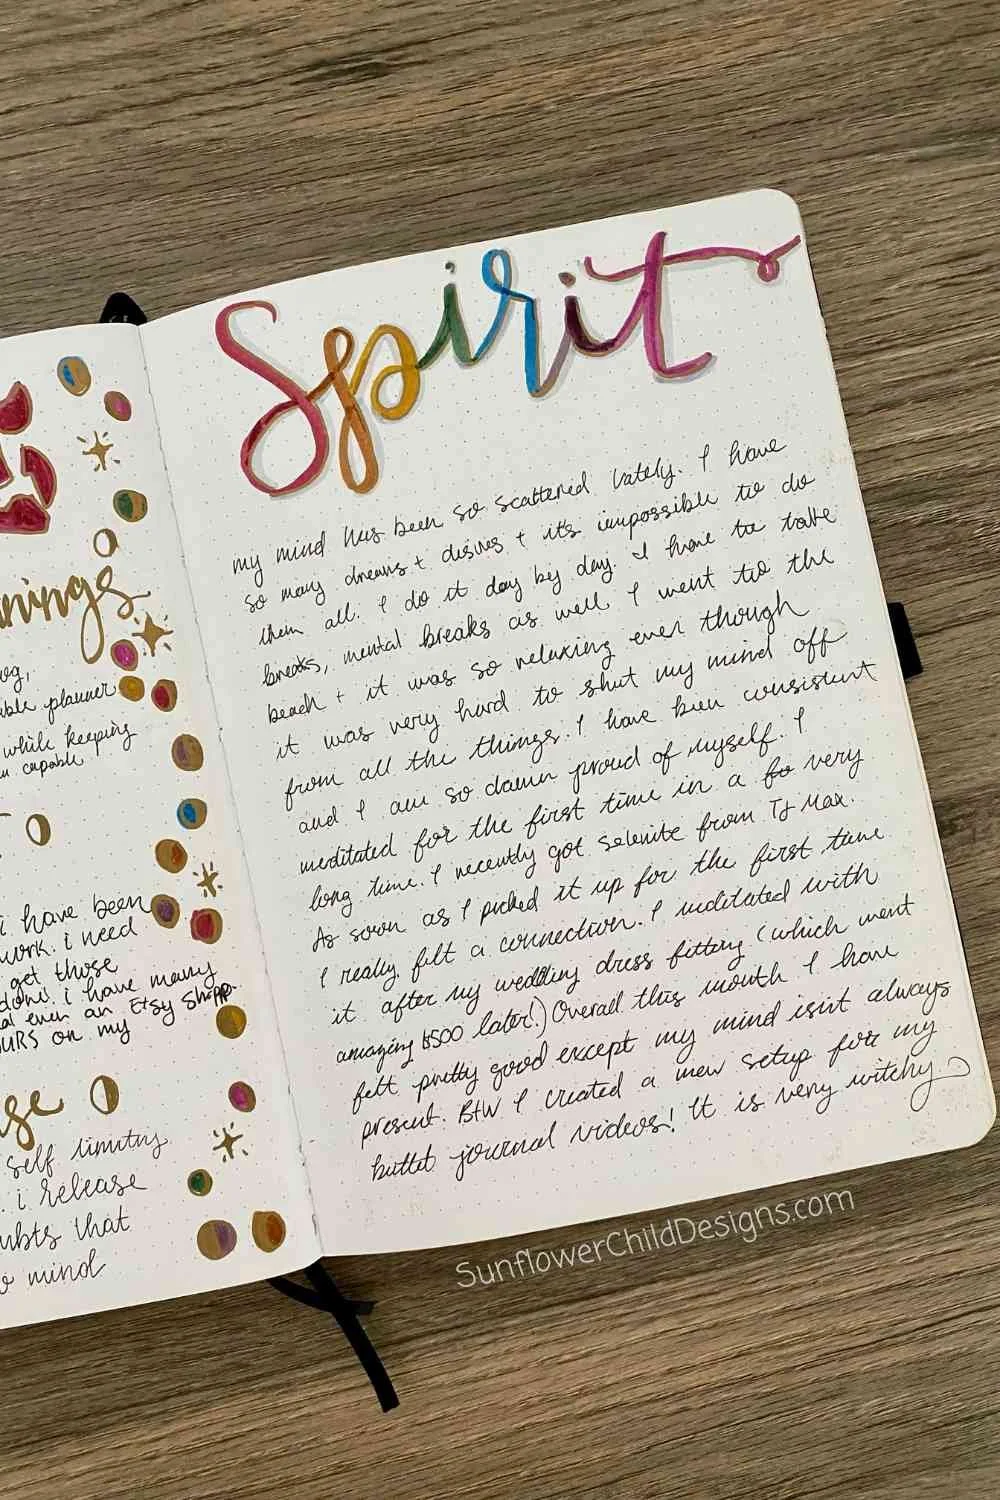 nnings
og,
able planner
while keeping
capable
i have been
work. i need
get those
done. i have many
even an Etsy shop.
OURS on my
se
self limiting
. i release
ubts that
mind
Spirit
my mind has been so scattered lately. I have
so many dreams + desires + it's impossible to do
them all. I do it day by day. I have to take
breaks, mental breaks as well. I went to the
beach + it was so relaxing even though
it was very hard to shut my mind off
from all the things. I have been consistent
and I am so damn proud of myself. I
meditated for the first time in a fo very
long time. I recently got selenite from TJ Max.
As soon as I picked it up for the first time
I really felt a connection. I meditated with
it after my wedding dress fitting (which went
amazing $500 later!) Overall this month I have
felt pretty good except my mind isn't always
present. BTW I created a new setup for my
bullet journal videos! It is very witchy
SunflowerChildDesigns.com